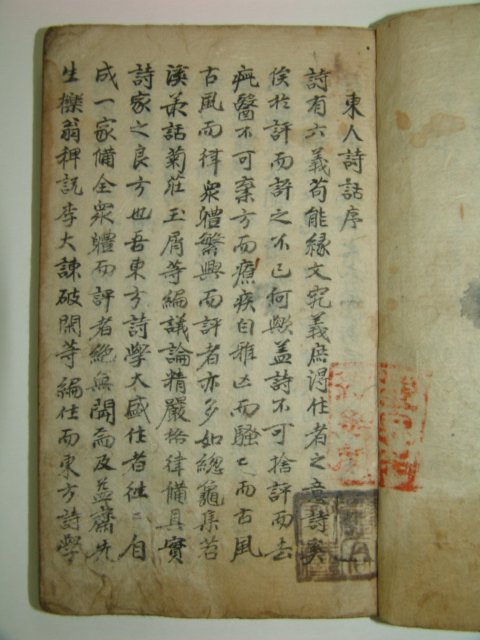 東人詩話序
詩有六義苟能緣文究義庶得作者之意詩奚
俟於評而評之不已何歟盖詩不可捨評而去
疵醫不可棄方而療疾自雅亡而騷〻而古風
古風而律衆體繁興而評者亦多如總龜集苕
溪叢話菊莊玉屑等編議論精嚴格律備具實
詩家之良方也吾東方詩學大盛作者徃〻自
成一家備全衆體而評者絶無聞焉及益齋先
生櫟翁稗説李大諫破閑等編作而東方詩學